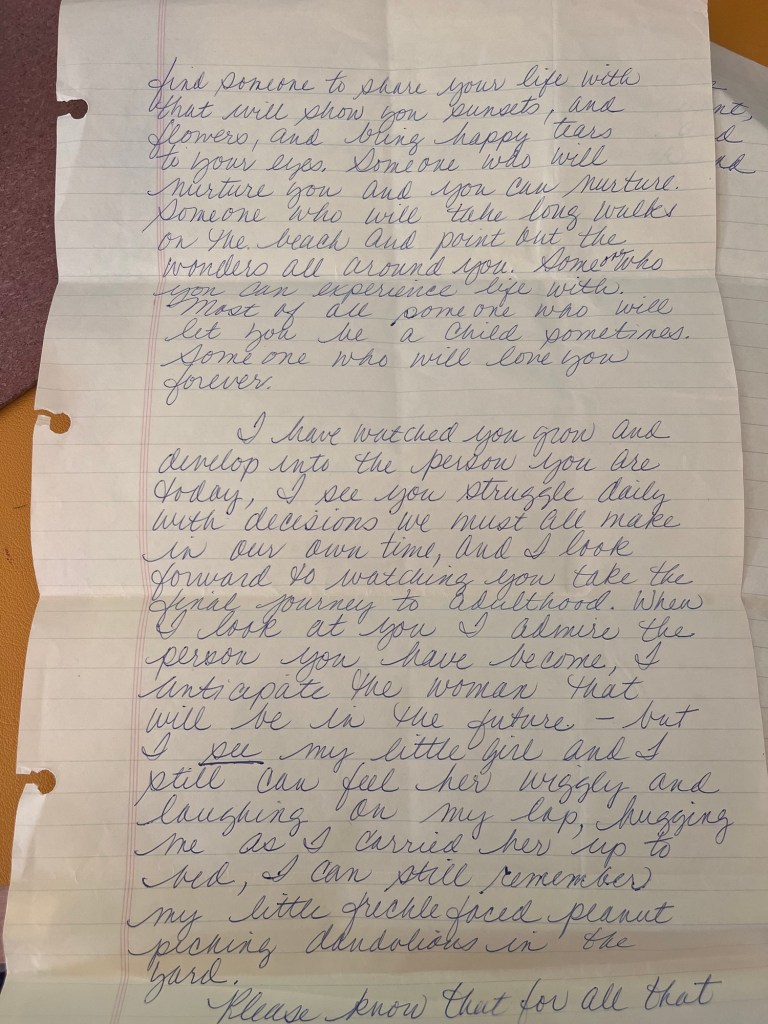 find someone to share your life with
that will show you sunsets, and
flowers, and bring happy tears
to your eyes. Someone who will
nurture you and you can nurture.
Someone who will take long walks
on the beach and point out the
wonders all around you. Someone who
you can experience life with.
Most of all someone who will
let you be a child sometimes.
Someone who will love you
forever.
I have watched you grow and
develop into the person you are
today, I see you struggle daily
with decisions we must all make
in our own time, and I look
forward to watching you take the
final journey to adulthood. When
I look at you I admire the
person you have become, I
anticipate the woman that
will be in the future – but
I see my little girl and I
still can feel her wiggly and
laughing on my lap, hugging
me as I carried her up to
bed, I can still remember
my little freckle faced peanut
picking dandolions in the
yard.
Please know that for all that